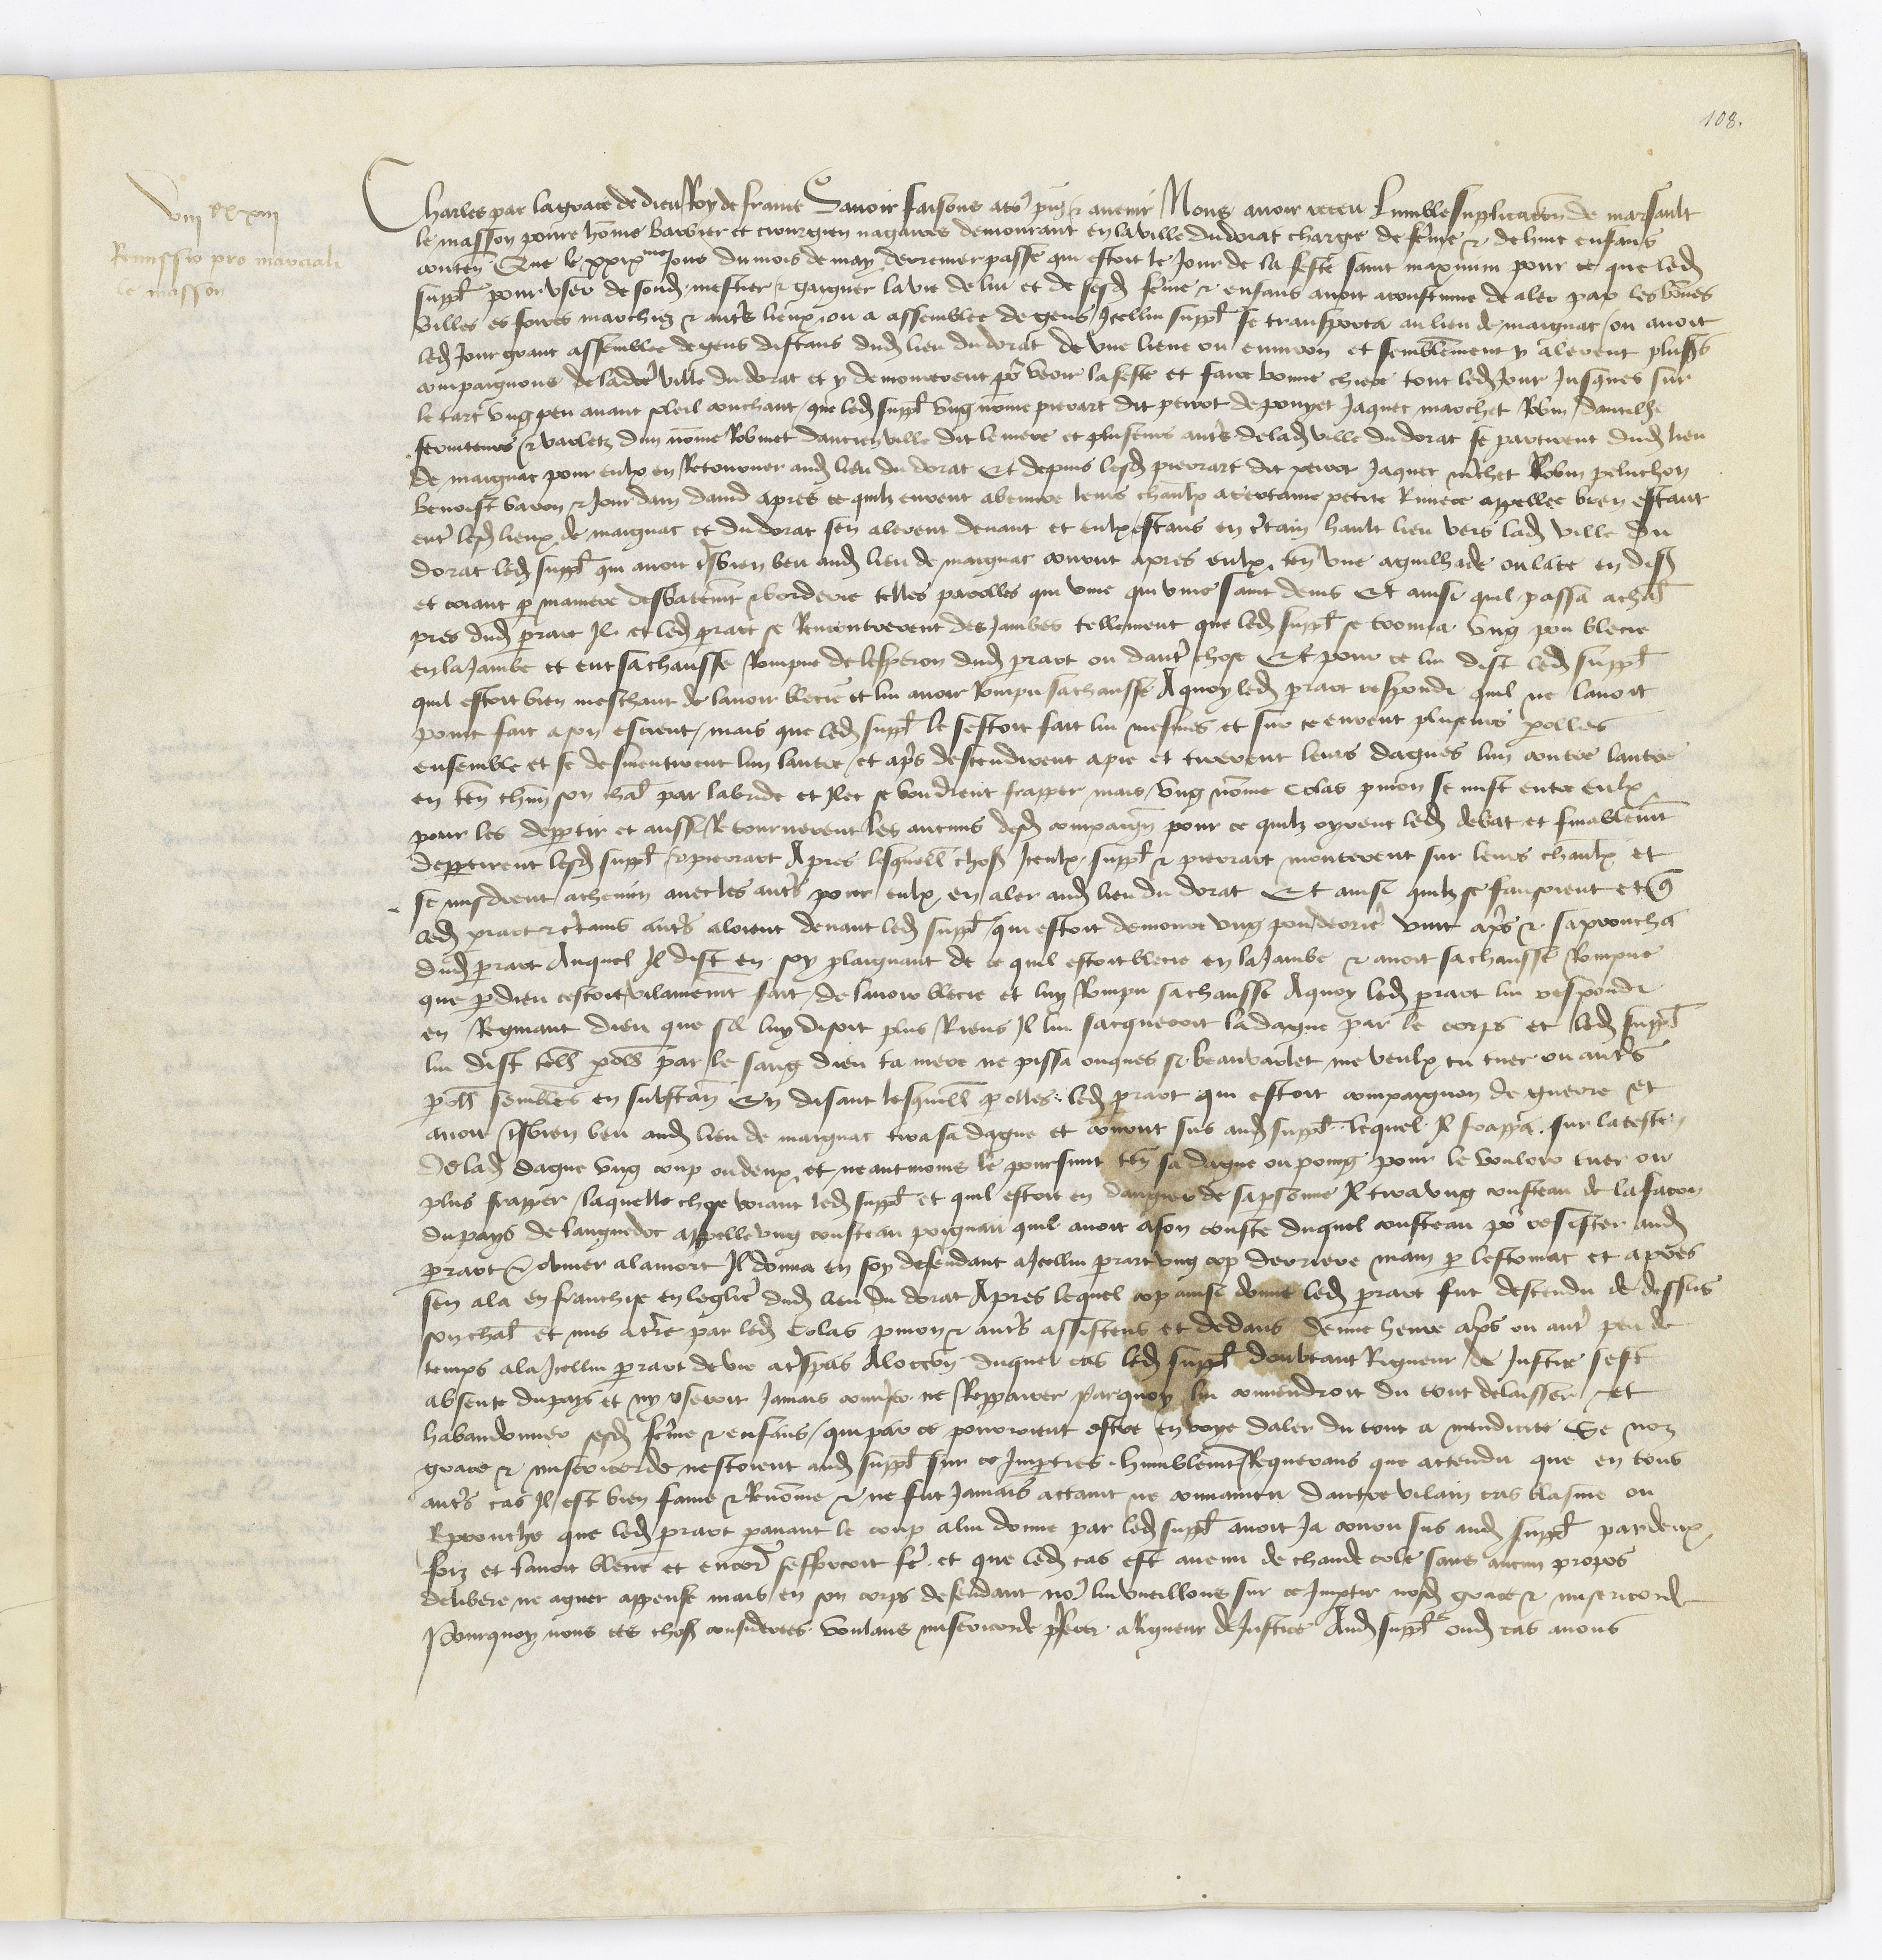 108.
viii xx xiii
Remissio pro marciali
le masson
Charles par la grace de dieu Roy de france Savoir faisons a to' pns et avenir Nous avoir receu lumble suplicacion de marsault
le masson povre home barbier et cirurgien nagaires demourant en la ville du dorat chargie de feme et de huit enfans
conten Que le xxix me jour du mois de may derrenier passe qui estoit le jour de la feste saint maximin pour ce que led
suppl pour user de sond mestier et gaigner la vie de lui et de sesd feme et enfans avoit acoustume de aler par les bones
villes es foires marchiez et autres lieux ou a assemblee de gens Icellui suppl se transporta au lieu de maignac ou avoit
led jour grant assemblee de gens distans dud lieu du dorat de une lieue ou environ et semblement y alerent plus
compaignons de lad ville du dorat et y demourerent po veoir la feste et faire bonne chiere tout led jour jusques sur
le tart ung peu avant soleil couchant que led suppl ung nome pierart dit perrot de pouyet Jaquet marchet Robin dantilhe
serviteurs et varletz dun nome Robinet dancienville dit lemere et plusieurs autres de lad ville du dorat se partirent dud lieu
de maignac pour eulx en Retourner aud lieu du dorat Et depuis lesd pierart dit perrot Jaquet mchet Robin peluchon
benoist baron et Jourdain david apres ce quilz eurent abeuvre leurs chaulx a certaine petite Riviere appellee bren estant
entre lesd lieux de maignac et du dorat sen alerent devant et eulx estans en ctain hault lieu vers lad ville du
dorat led suppl qui avoit tsbien beu aud lieu de maignac courut apres eulx ten une aguilhade ou late en dis
et criant p maniere desbatemt et borderie telles parolles qui vive qui vive saint denis Et ainsi quil passa a chal
pres dud prart Il et led prart se Rencontrerent des jambes tellement que led suppl se trouva ung pou blecie
en la jambe et eut sa chausse Rompue de lesperon dud prart ou dautre chose Et pour ce lui dist led suppl
quil estoit bien meschant de lavoir blecie et lui avoir Rompu sa chausse A quoy led prart respondi quil ne lavoit
point fait a son escient mais que led suppl le sestoit fait lui mesmes et sur ce eurent plusieurs polles
ensemble et se desmentirent lun lautre et aps descendirent a pie et tirerent leurs dagues lun contre lautre
en ten chun son chal par la bride et Ilec se voudrent frapper mais ung nome Colas pinon se mist entre eulx
pour les depptir et aussi Retournerent les aucuns desd compaign pour ce quilz oyrent led debat et finablemt
depptirent lesd suppl et pierart Apres lesquell chos Iceulx suppl et pierart monterent sur leurs chaulx et
se misdrent a chemin avec les autres pour eulx en aler aud lieu du dorat Et ainsi quilz se faisoient et q
led prart et ctains autres aloient devant led suppl qui estoit demoure ung pou derrie vint aps et saproucha
dud prart Auquel Il dist en soy plaignant de ce quil estoit blecie en la jambe et avoit sa chausse Rompue
que p dieu cestoit vilainemt fait de lavoir blecie et luy Rompu sa chausse A quoy led prart lui respondi
en Regniant dieu que sil luy disoit plus Riens Il lui sacqueroit la dague par le corps et led suppl
lui dist tell poll par le sang dieu ta mere ne pissa onques si beau varlet me veulx tu tuer ou autres
poll sembles en substan En disant lesquell polles led prart qui estoit compaignon de guerre et
avoit tsbien beu aud lieu de maignac tira sa dague et courut sus aud suppl lequel Il frappa sur la teste
de lad dague ung coup ou deux et neantmoins le poursuit ten sa dague ou poing pour le vouloir tuer ou
plus frapper laquelle chose voiant led suppl et quil estoit en dangier de sa psonne Il tira ung cousteau de la facon
du pays de languedoc appelle ung cousteau poignau quil avoit a son couste duquel cousteau po resister aud
prart et obvier a la mort Il donna en soy defendant a Icellui prart ung cop derriere main p lestomac et apres
sen ala en franchise en leglise dud lieu du dorat Apres lequel cop ainsi donne led prart fut descendu de dessus
son chal et mis a tre par led Colas pinon et autres assistens et dedans demie heure aps ou autre peu de
temps ala Icellui prart de vie a tspas A loccon duquel cas led suppl doubtant Rigueur de Justice sest
absente du pays et ny oseroit jamais conver ne Repairer par quoy lui convendroit du tout delaisser et
habandonner sesd feme et enfans qui par ce pourroient estre en voye daler du tout a mendicite Se noz
grace et misericorde nestoient aud suppl sur ce impties humblemt Requerans que attendu que en tous
autres cas Il est bien fame et Renome et ne fut jamais actaint ne convaincu dautre vilain cas blasme ou
Reprouche que led prart pavant le coup a lui donne par led suppl avoit ja couru sus aud suppl par deux
foiz et lavoit blecie et encor sefforcoit fe et que led cas est avenu de chaude cole sans aucun propos
delibere ne aguet appense mais en son corps defendant no lui vueillons sur ce imptir nosd grace et misericorde
Pourquoy nous ces chos considerees voulans misericorde pferer a Rigueur de Justice Aud suppl oud cas avons